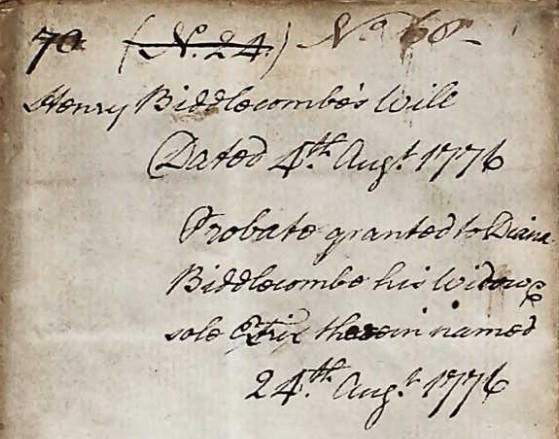 70 (N. 24.) No. 68
Henry Biddlecombe's Will
Dated 4th. Augt. 1776
Probate granted to Diana
Biddlecombe his Widow &
sole Extrix therein named
24th. Augt. 1776